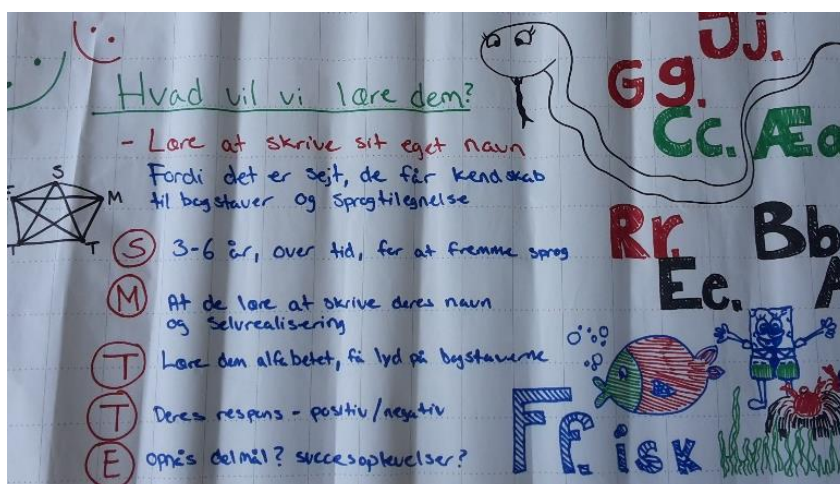 Hvad vil vi lære dem?
- Lære at skrive sit eget navn
Fordi det er sejt, de får kendskab
til bogstaver og Sprogtilegnelse
S
M
T
T
S 3-6 år, over tid, for at fremme sprog
M At de lære at skrive deres navn
og selvrealisering
T Lære dem alfabetet, få lyd på bogstaverne
T Deres respons - positiv/negativ
E opnås delmål? succesoplevelser?
Jj.
Gg.
Cc. Æ
Rr. Bb
Ee. A
Ff. isk